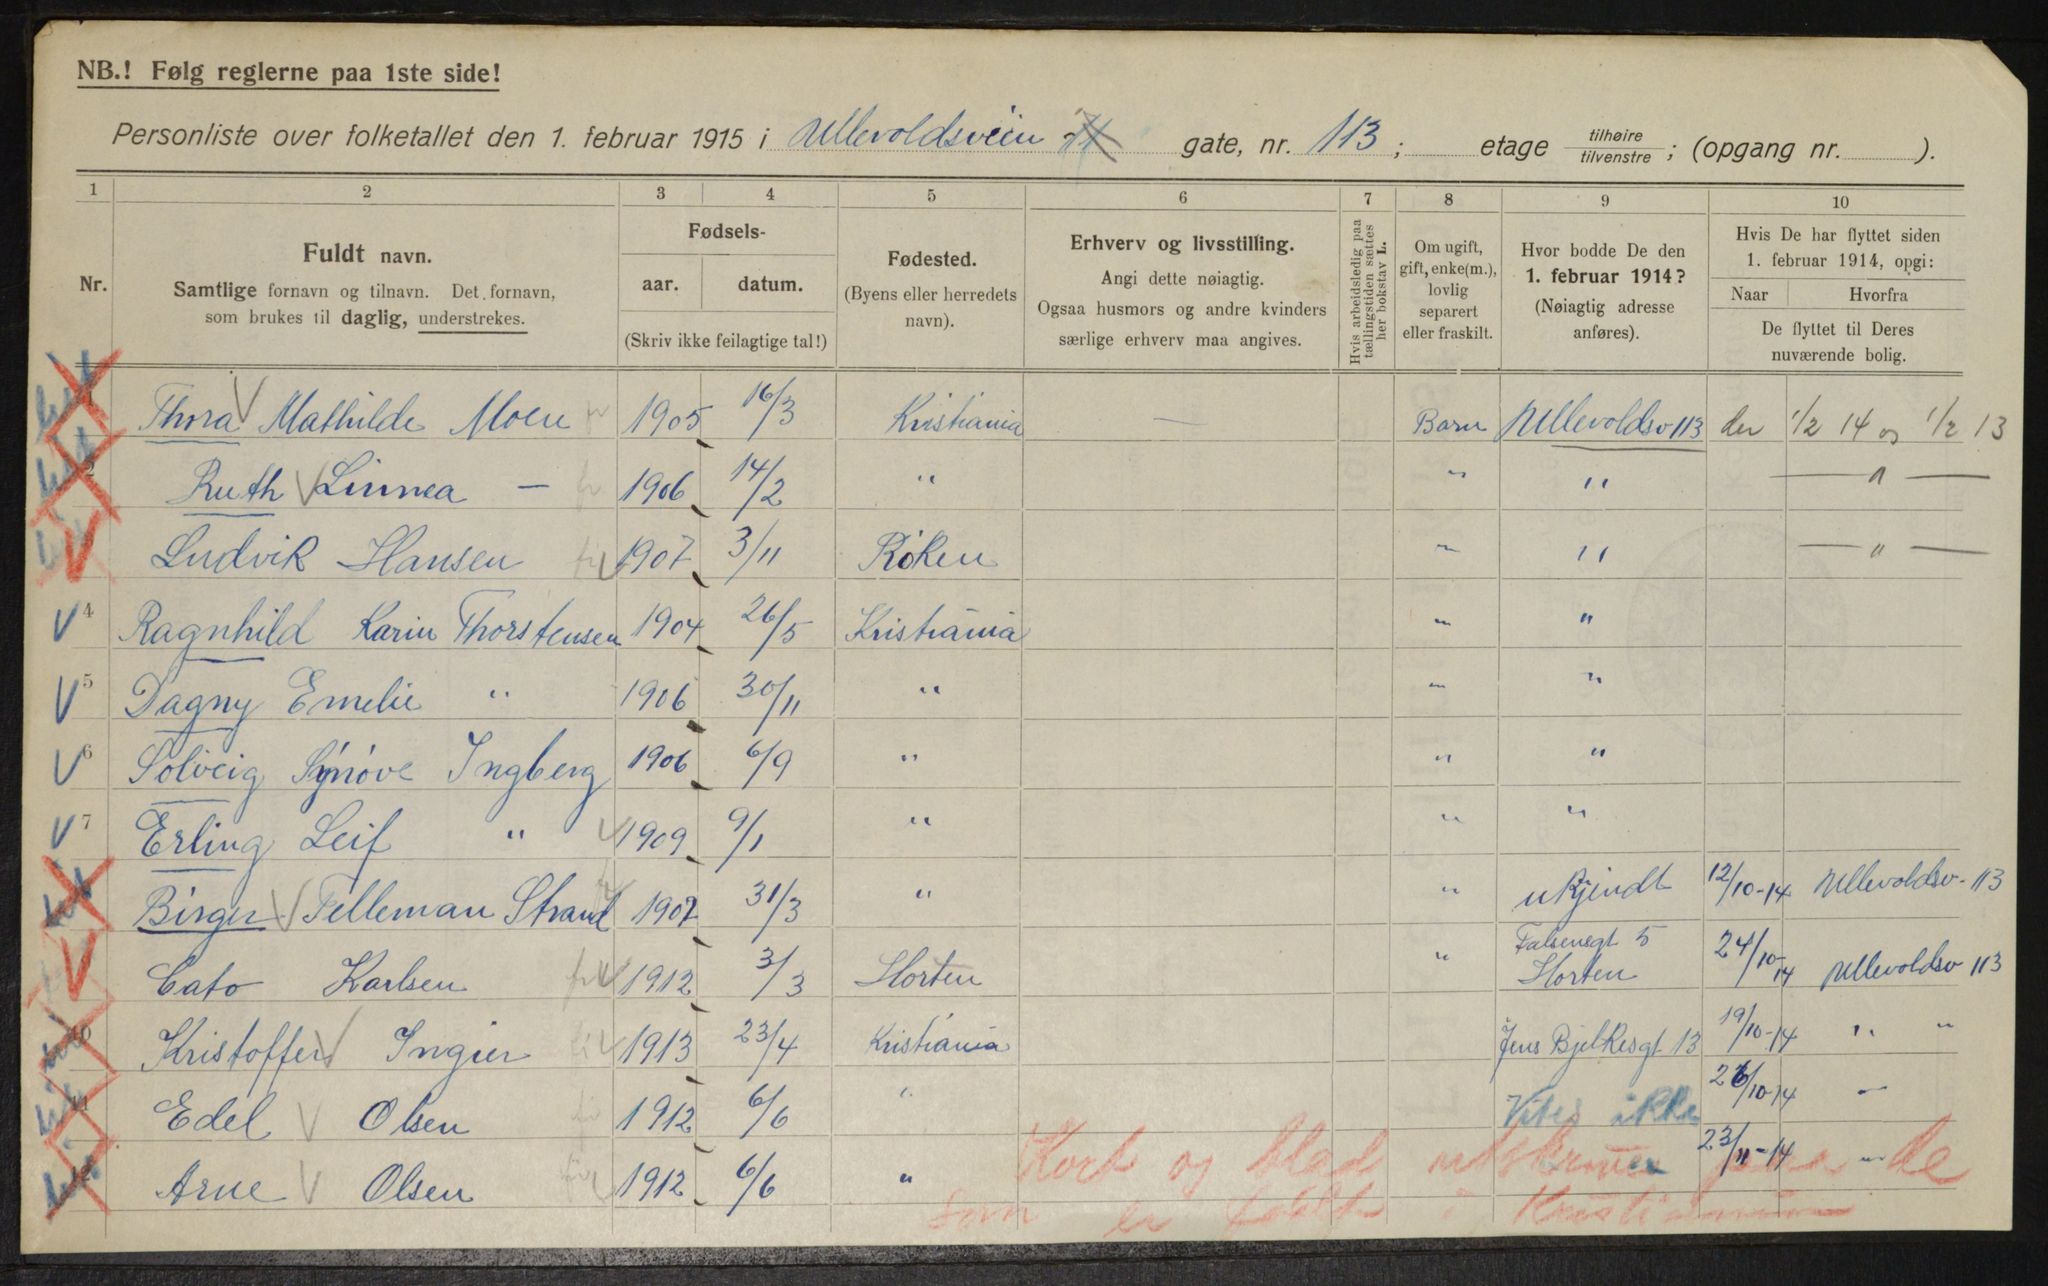 NB.! Følg reglerne paa 1ste side!
Personliste over folketallet den 1. februar 1915 i Ullevoldsveien gate, nr. 113; etage tilhøire / tilvenstre; (opgang nr. ).
1 2 3 4 5 6 7 8 9 10
Nr.
Fuldt navn.
Samtlige fornavn og tilnavn. Det fornavn,
som brukes til daglig, understrekes.
Fødsels-
aar. datum.
(Skriv ikke feilagtige tal!)
Fødested.
(Byens eller herredets
navn).
Erhverv og livsstilling.
Angi dette nøiagtig.
Ogsaa husmors og andre kvinders
særlige erhverv maa angives.
Hvis arbeidsledig paa
tællingstiden sættes
her bokstav L.
Om ugift,
gift, enke(m.),
lovlig
separert
eller fraskilt.
Hvor bodde De den
1. februar 1914?
(Nøiagtig adresse
anføres).
Hvis De har flyttet siden
1. februar 1914, opgi:
Naar Hvorfra
De flyttet til Deres
nuværende bolig.
1 Thora Mathilde Moen 1905 16/3 Kristiania — Barn Ullevoldsv 113 der 1/2 14 og 1/2 13
2 Ruth Linnea — 1906 14/2 " " " — " —
Ludvik Hansen 1907 3/11 Røken " " — " —
4 Ragnhild Karin Thorstensen 1904 26/5 Kristiania " "
5 Dagny Emelie " 1906 30/11 " " "
6 Solveig Synöve Ingberg 1906 6/9 " " "
7 Erling Leif " 1909 9/1 " " "
Birger Telleman Strand 1907 31/3 " " ukjendt 12/10-14 Ullevoldsv. 113
9 Cato Karlsen 1912 3/3 Horten " Falsensgt 5 Horten 24/10-14 Ullevoldsv 113
10 Kristoffer Ingier 1913 23/4 Kristiania Jens Bjelkesgt 13 19/10-14 " "
11 Edel Olsen 1912 6/6 " Vites ikke 26/10-14 "
12 Arne Olsen 1912 6/6 " 23/11-14 "
Kort og blad utskrevet paa de
som er født i Kristiania